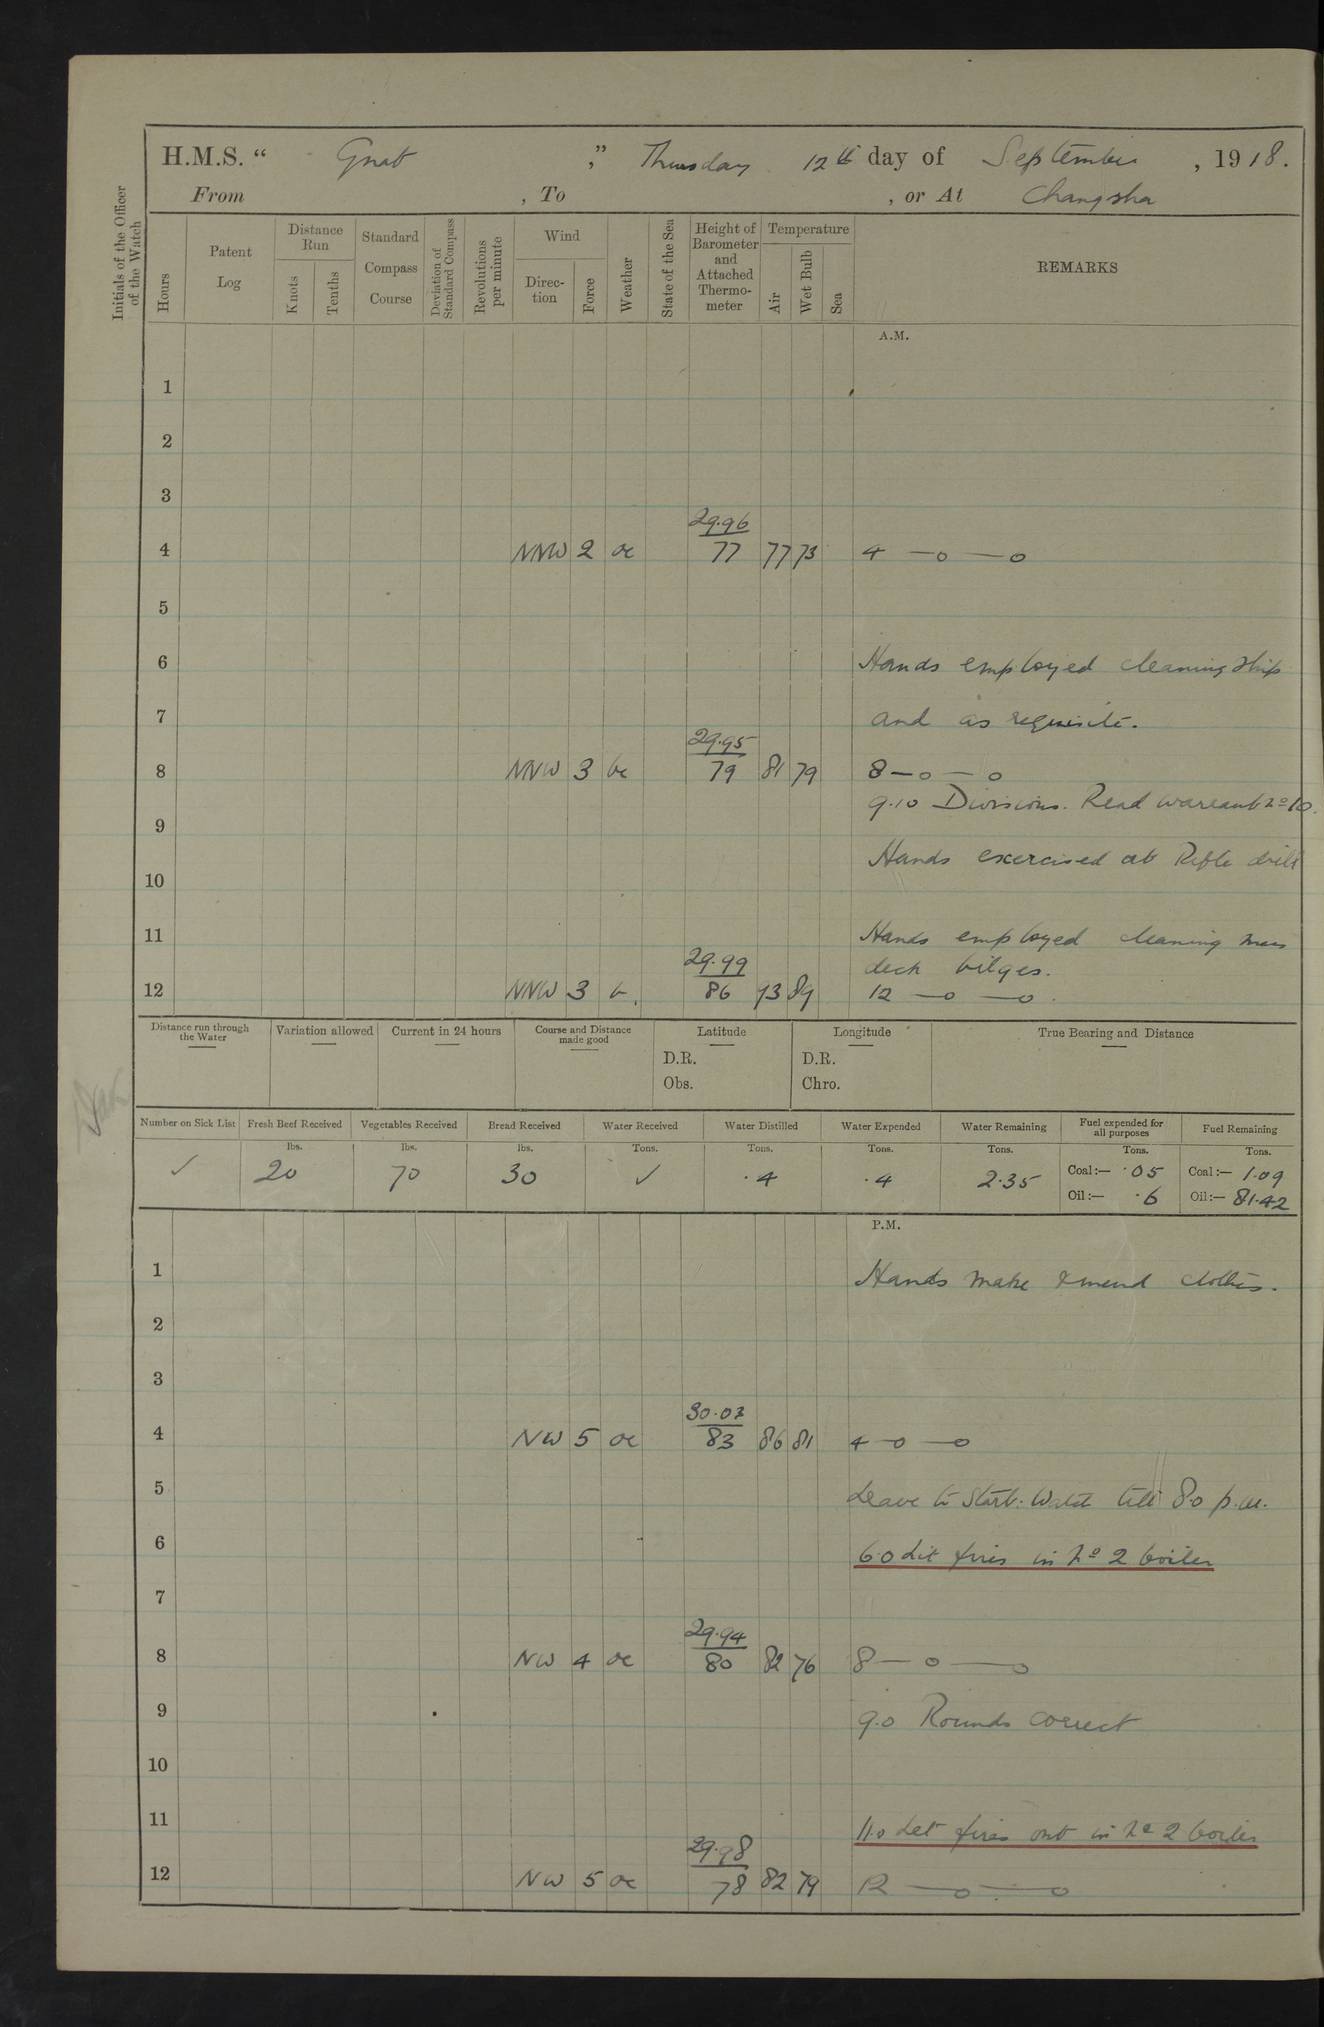 H.M.S. “ Gnat ,” Thursday 12th day of September , 1918.
From , To , or At Changsha
Initials of the Officer of the Watch
Hours
Patent Log
Distance Run
Knots
Tenths
Standard Compass Course
Deviation of Standard Compass
Revolutions per minute
Wind
Direc-tion
Force
Weather
State of the Sea
Height of Barometer and Attached Thermo-meter
Temperature
Air
Wet Bulb
Sea
REMARKS
A.M.
1
2
3
29.96
4 NNW 2 oc 77 77 73 4 —o —o
5
6 Hands employed cleaning ship
7 and as requisite.
29.95
8 NNW 3 bc 79 81 79 8 —o —o
9.10 Divisions. Read warrant No 10.
9
Hands exercised at Rifle drill
10
11 Hands employed cleaning mess
29.99 deck bilges.
12 NNW 3 b. 86 93 89 12 —o —o
Distance run through the Water
Variation allowed
Current in 24 hours
Course and Distance made good
Latitude
D.R.
Obs.
Longitude
D.R.
Chro.
True Bearing and Distance
Number on Sick List ✓
Fresh Beef Received lbs. 20
Vegetables Received lbs. 70
Bread Received lbs. 30
Water Received Tons. ✓
Water Distilled Tons. .4
Water Expended Tons. .4
Water Remaining Tons. 2.35
Fuel expended for all purposes Tons. Coal:— .05 Oil:— .6
Fuel Remaining Tons. Coal:— 1.09 Oil:— 81.42
P.M.
1 Hands make & mend clothes.
2
3
30.03
4 NW 5 oc 83 86 81 4 —o —o
5 Leave to Starb. Watch till 8.0 p.m.
6 6.0 Lit fires in No 2 boiler
7
29.94
8 NW 4 oc 80 82 76 8 —o —o
9 9.0 Rounds correct
10
11 11.0 Let fires out in No 2 boiler
29.98
12 NW 5 oc 78 82 79 12 —o —o